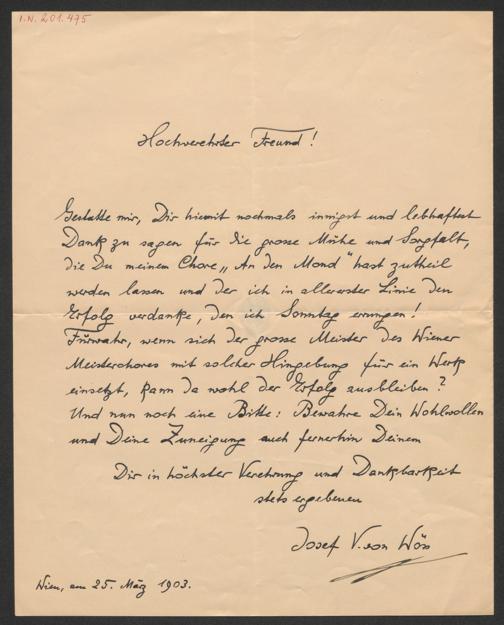 I.N. 201.475
Hochverehrter Freund!
Gestatte mir, Dir hiemit nochmals innigst und lebhaftest
Dank zu sagen für die grosse Mühe und Sorgfalt,
die Du meinem Chore „An den Mond" hast zutheil
werden lassen und der ich in allererster Linie den
Erfolg verdanke, den ich Sonntag errungen!
Fürwahr, wenn sich der grosse Meister des Wiener
Meisterchores mit solcher Hingebung für ein Werk
einsetzt, kann da wohl der Erfolg ausbleiben?
Und nun noch eine Bitte: Bewahre Dein Wohlwollen
und Deine Zuneigung auch fernerhin Deinem
Dir in höchster Verehrung und Dankbarkeit
stets ergebenen
Josef V. von Wöss
Wien, am 25. März 1903.